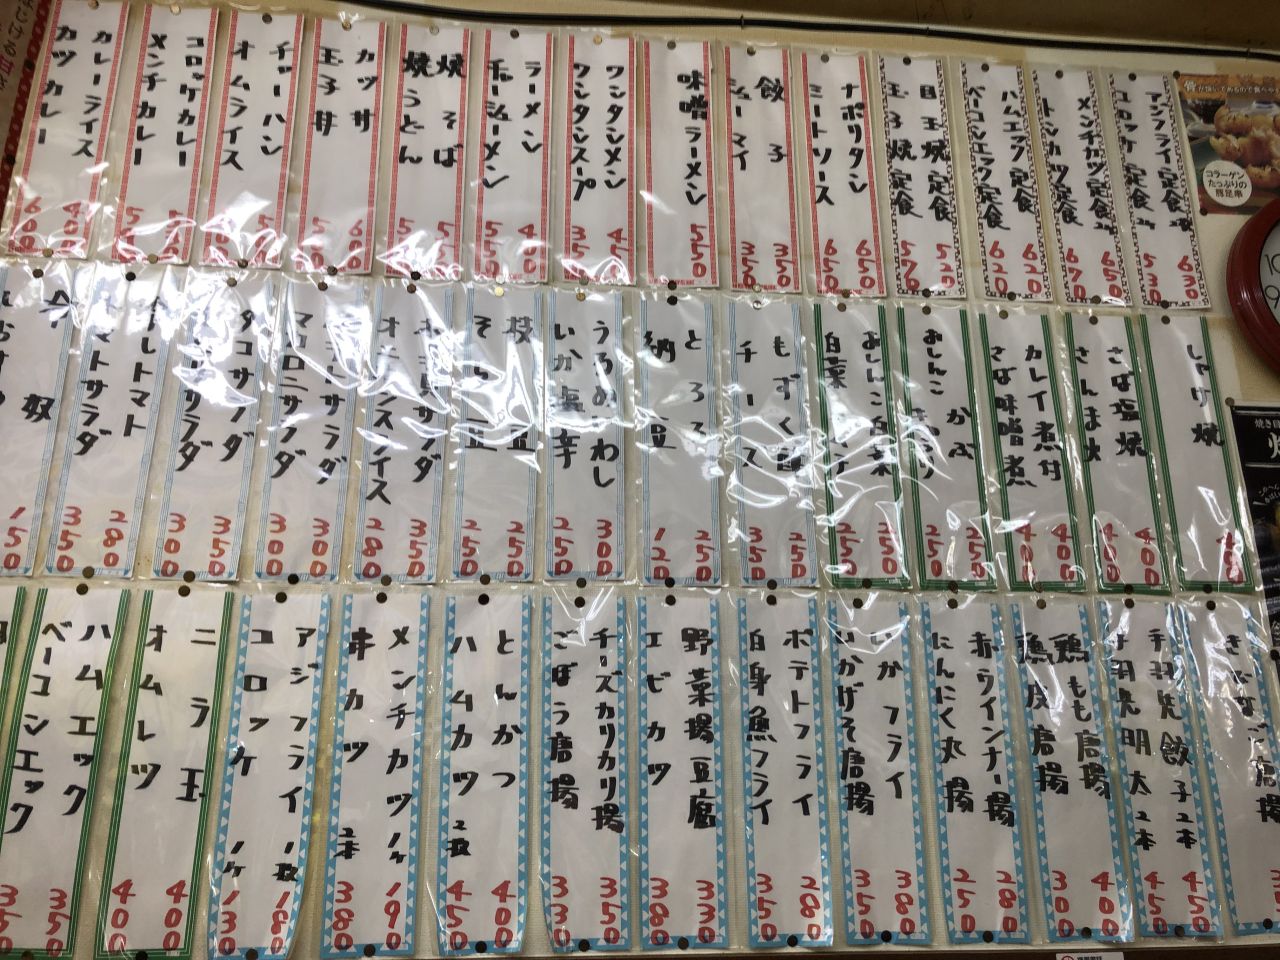 アジフライ定食 630
コロッケ定食 530
メンチカツ定食 650
トンカツ定食 670
ハムエッグ定食 620
ベーコンエッグ定食 620
目玉焼定食 520
玉子焼定食 570
ナポリタン 650
ミートソース 650
餃子 350
シューマイ 350
味噌ラーメン 550
ワンタンメン 450
ワンタンスープ 350
ラーメン 400
チャーシューメン 550
焼そば
焼うどん
カツ丼 600
玉子丼
チャーハン
オムライス
コロッケカレー
メンチカレー
カレーライス 400
カツカレー 600
しゃけ焼
さば塩焼 400
さんま火 400
カレイ煮付 400
さば味噌煮 400
おしんこ かぶ 250
おしんこ 250
おしんこ白菜 250
白菜 250
もずく酢 250
チーズ 350
とろろ 250
納豆 120
うるめいわし 300
いか塩辛 250
枝豆 250
そら豆 250
サラダ 350
オニオンスライス 280
サラダ 300
マカロニサラダ 300
タコサラダ 350
サラダ 300
冷しトマト 280
トマトサラダ 350
冷奴 150
唐揚
手羽先餃子2本 450
手羽先明太2本 450
鶏もも唐揚 400
鶏皮唐揚 300
赤ウインナー揚 280
にんにく丸揚 250
いかフライ 380
いかげそ唐揚 350
ポテトフライ 280
白身魚フライ 350
野菜揚豆腐 330
エビカツ 380
チーズカリカリ揚 350
ごぼう唐揚 300
とんかつ 400
ハムカツ 2枚 450
メンチカツ 1ヶ 190
串カツ 2本 380
アジフライ 1枚 180
コロッケ 1ヶ 130
ニラ玉 400
オムレツ 400
ハムエッグ 350
ベーコンエッグ 350
コラーゲン
たっぷりの
豚足串